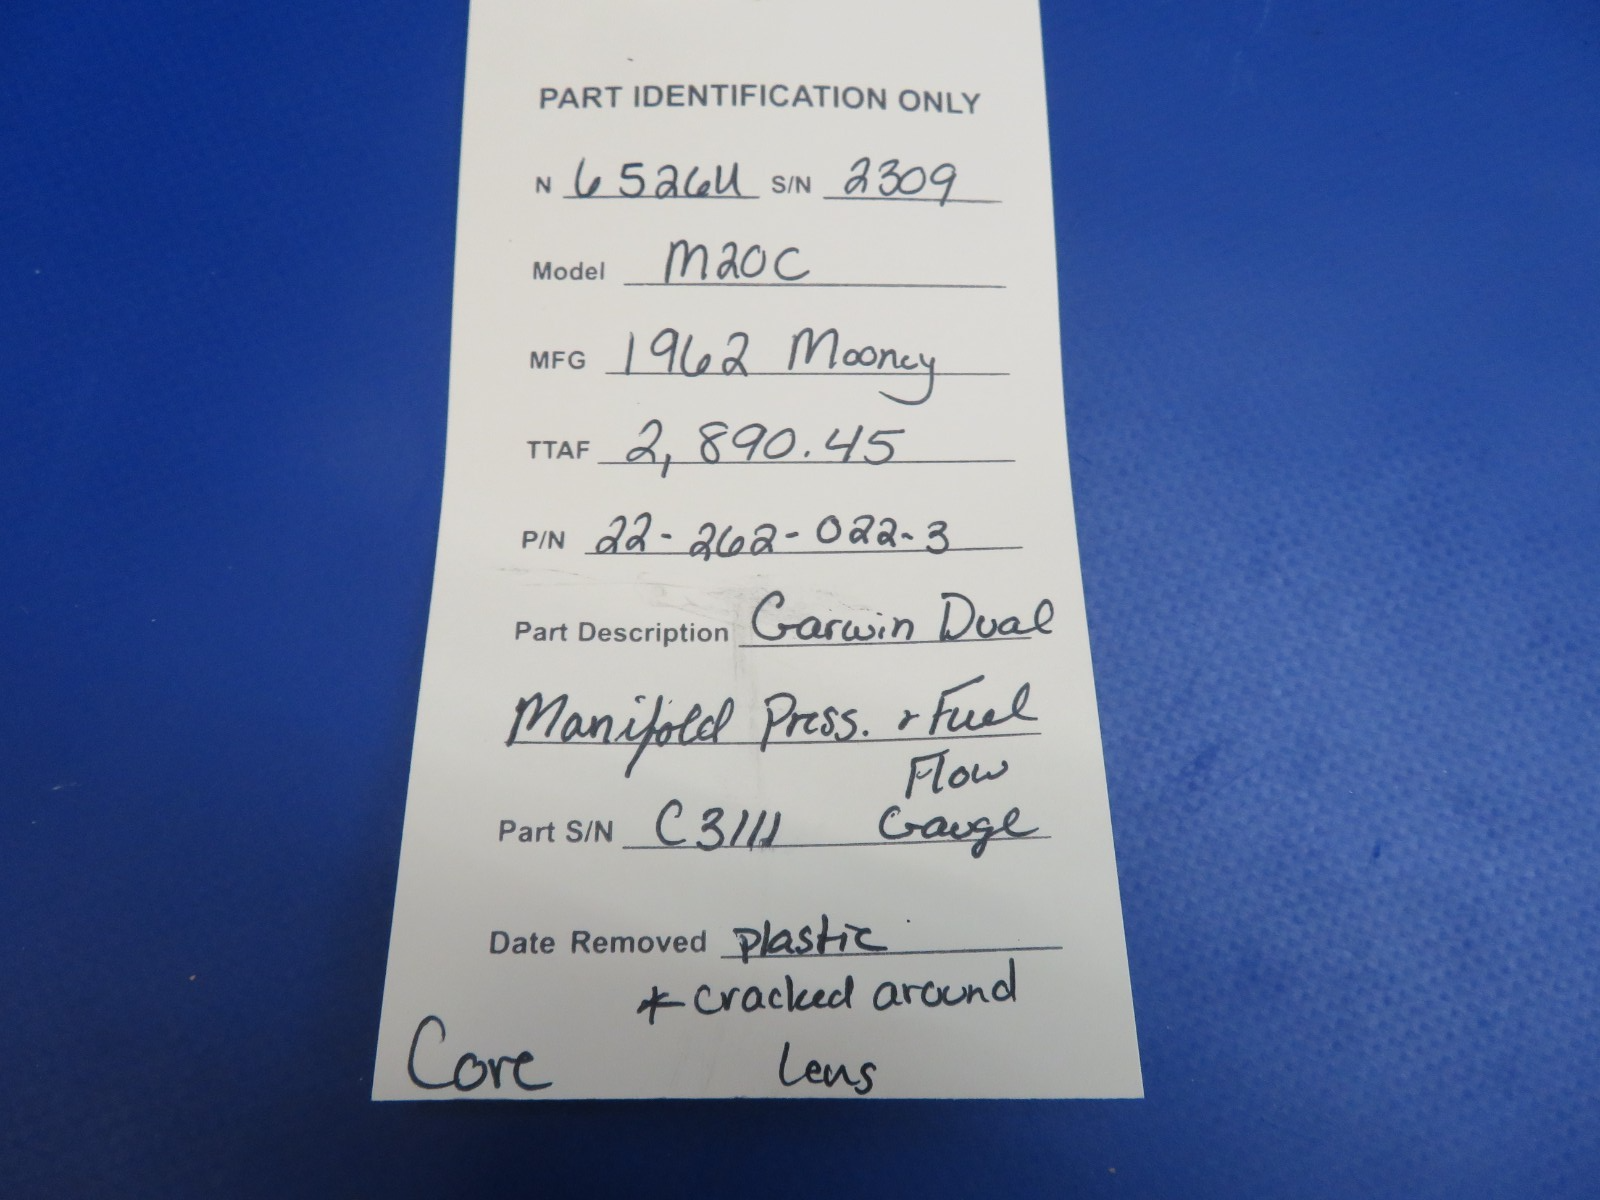 PART IDENTIFICATION ONLY
N 6526U S/N 2309
Model M20C
MFG 1962 Mooney
TTAF 2,890.45
P/N 22-262-022-3
Part Description Garwin Dual
Manifold Press. & Fuel
Flow
Part S/N C3111 Gauge
Date Removed plastic
* cracked around
Core lens